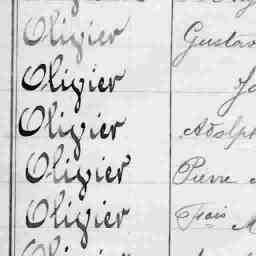 Olivier Gustav
Olivier
Olivier Adolph
Olivier Pierre
Olivier Frois